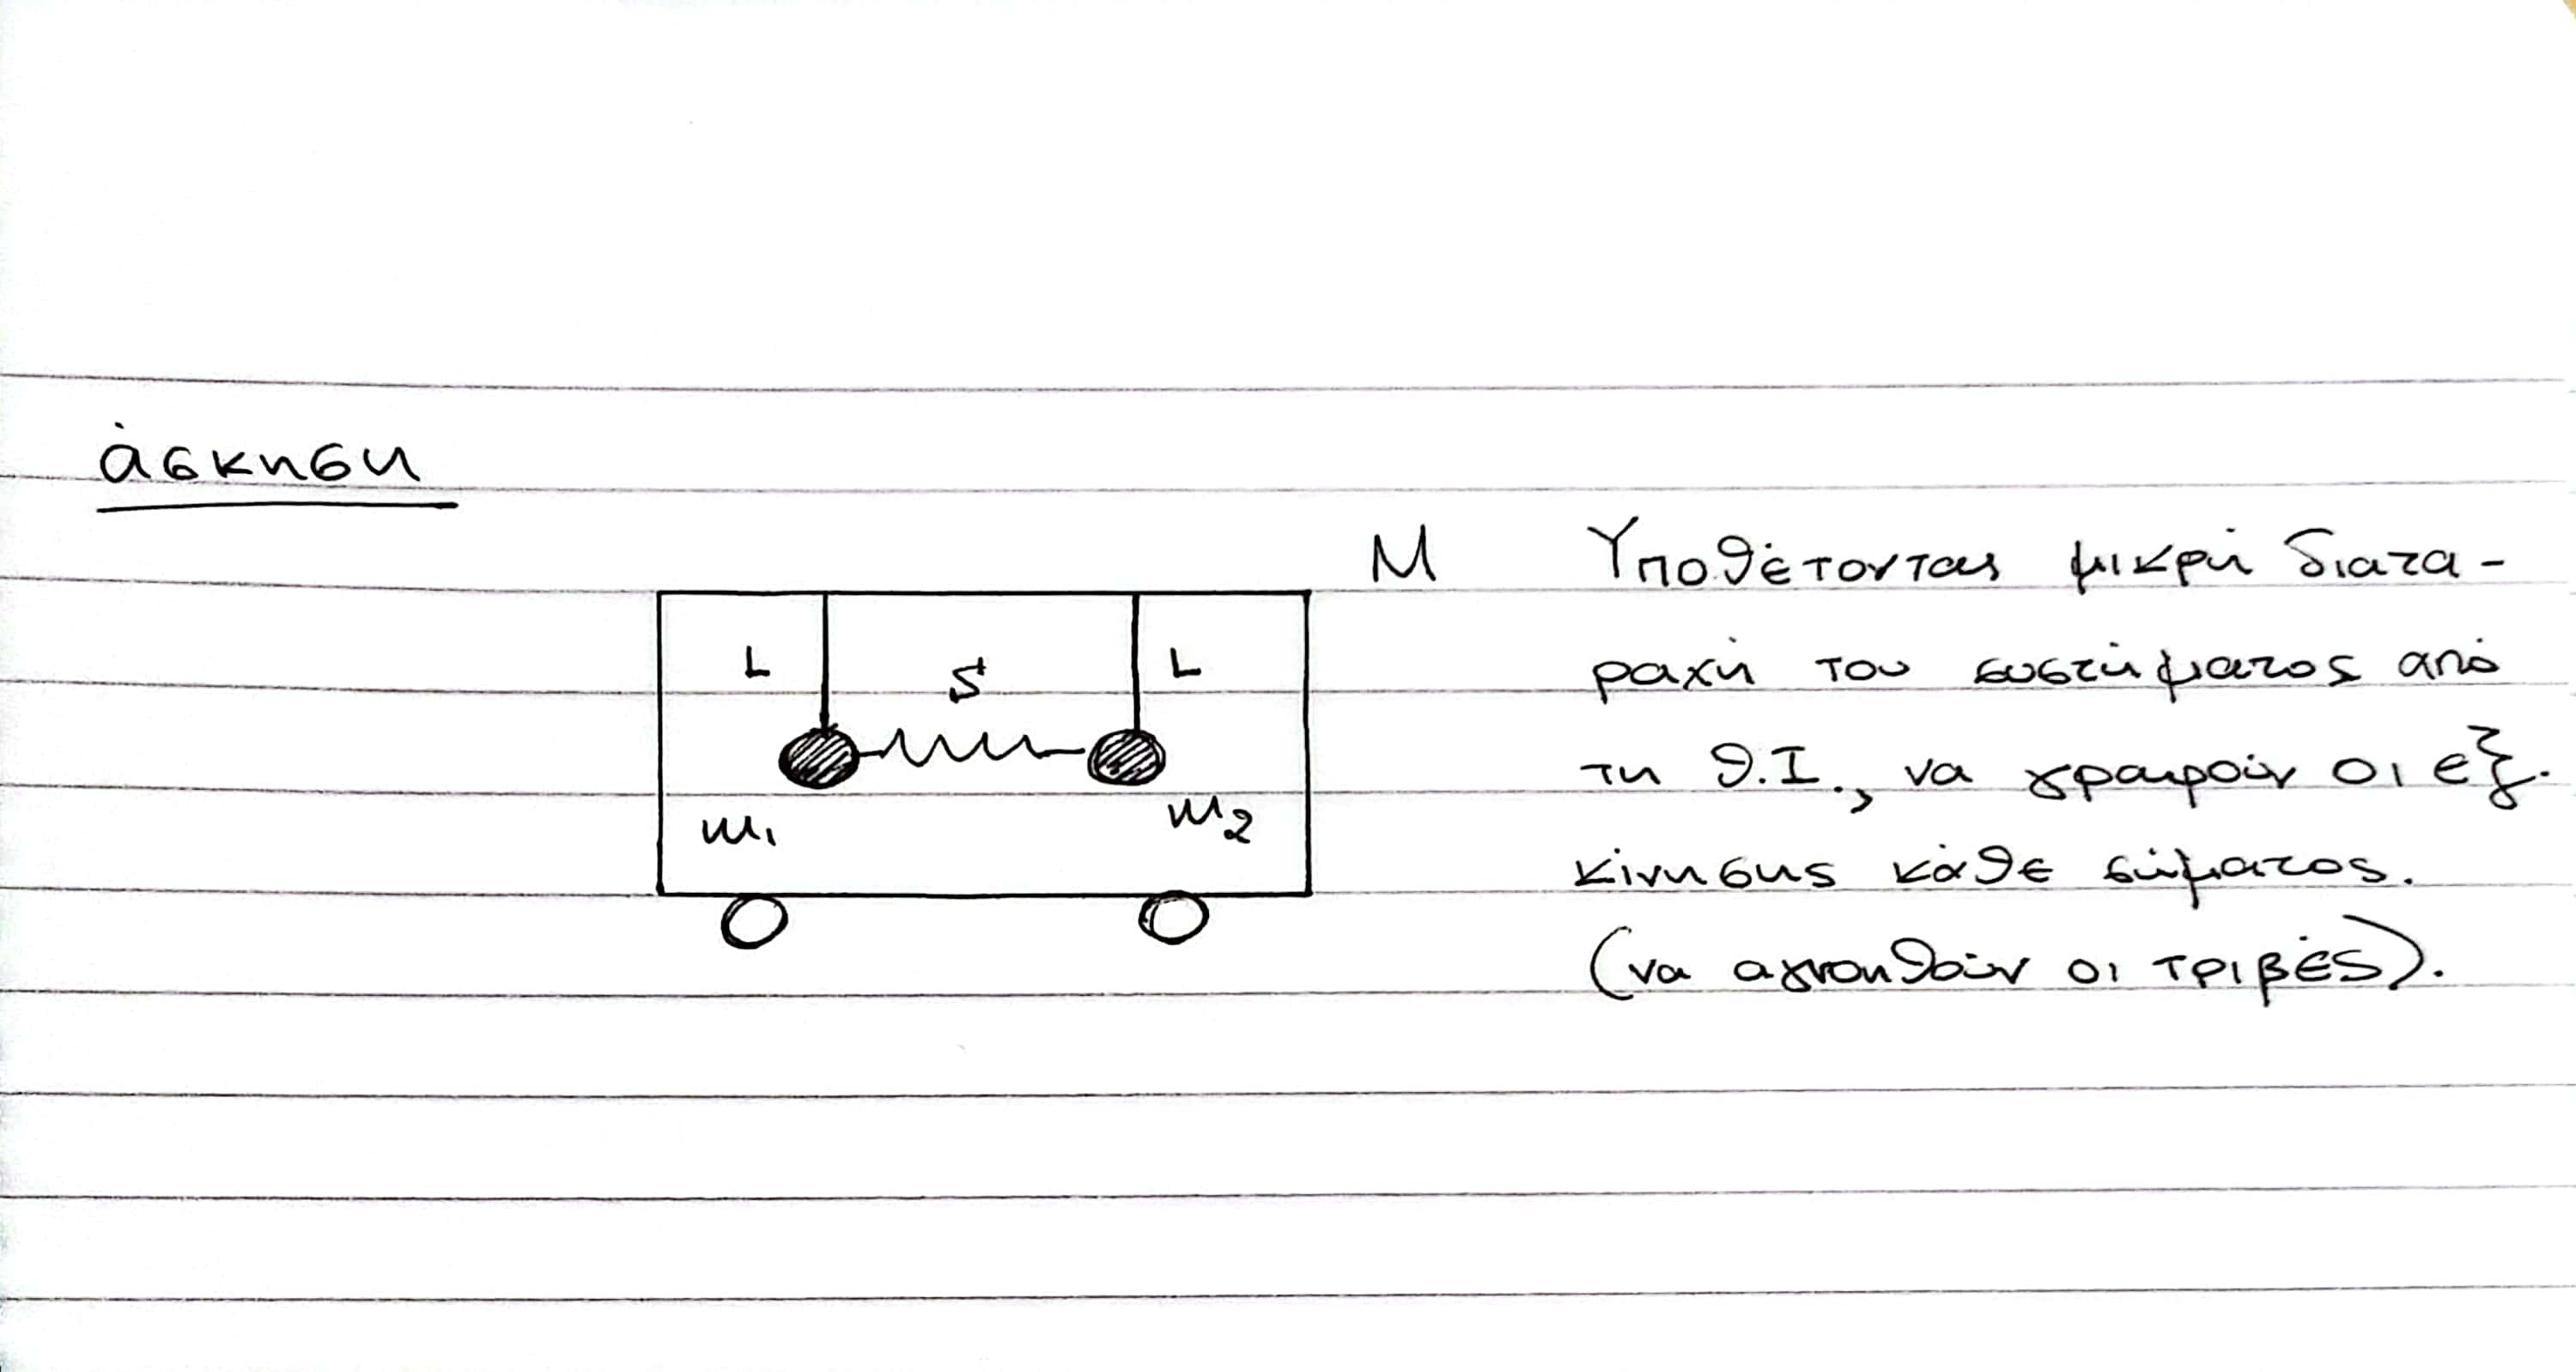 άσκηση
M
L S L
m₁ m₂
Υποθέτοντας μικρή διατα-
ραχή του συστήματος από
τη Θ.Ι., να γραφούν οι εξ.
κίνησης κάθε σώματος.
(να αγνοηθούν οι τριβές).